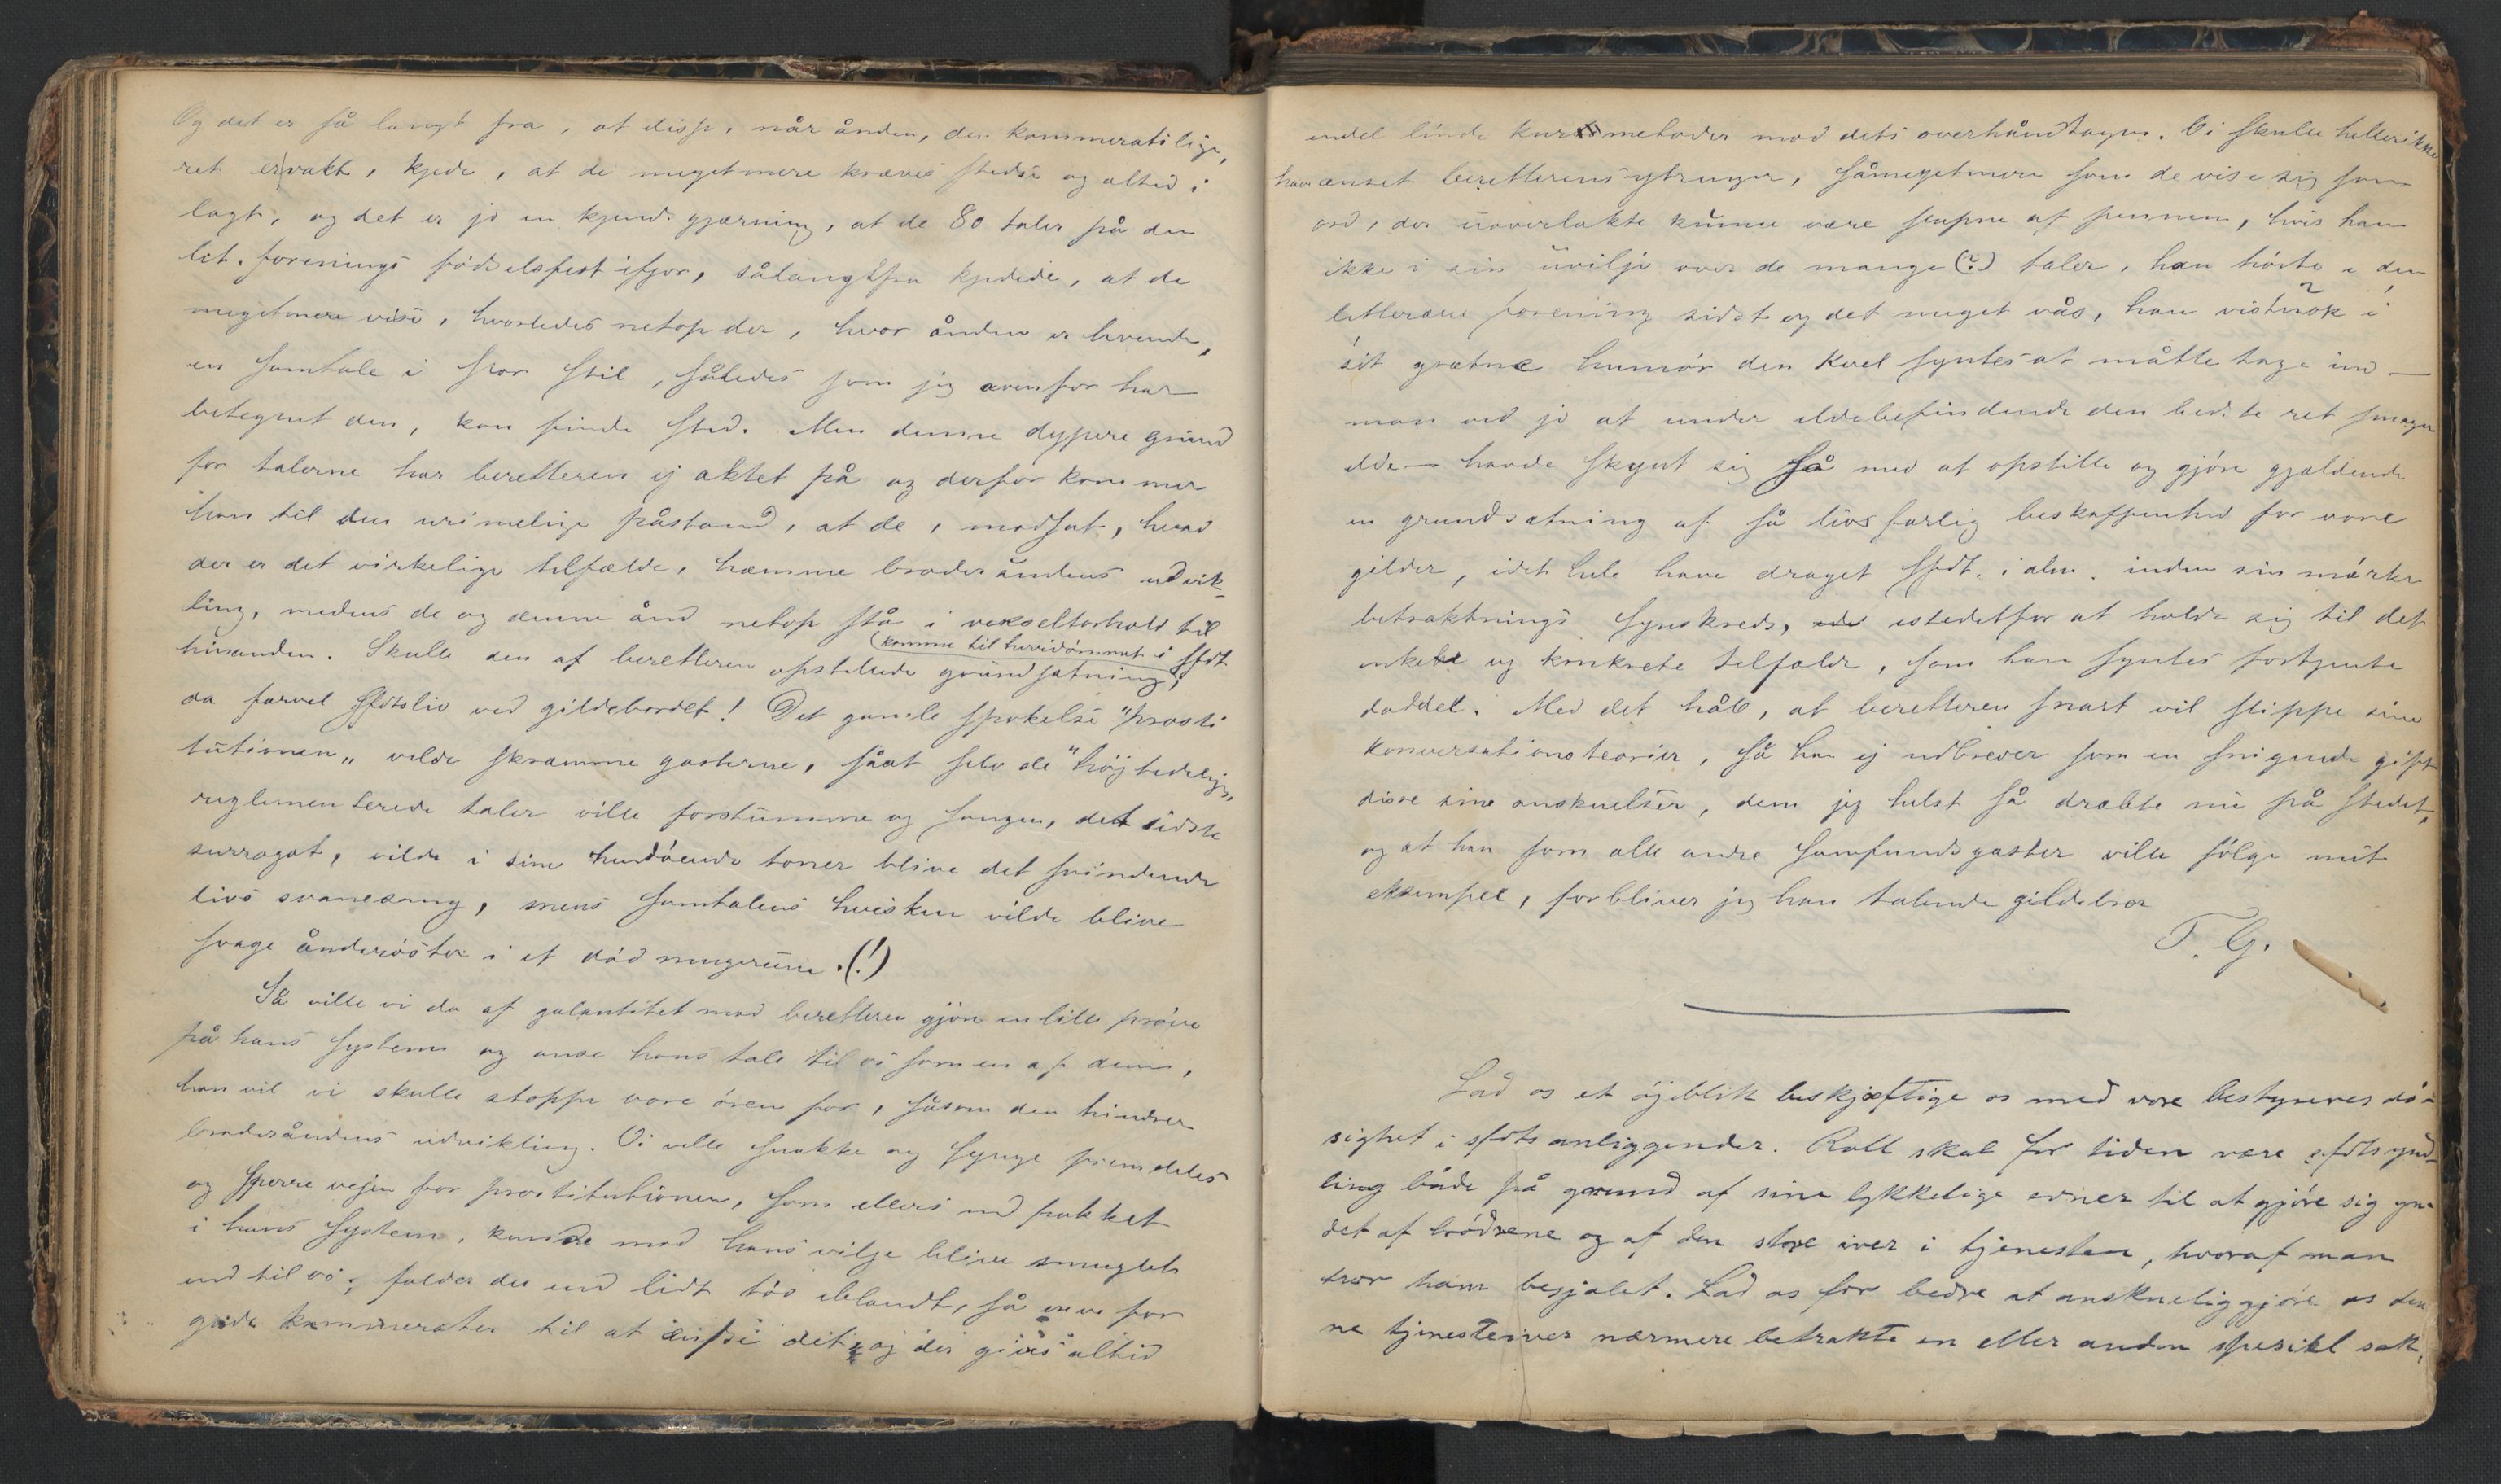 Og det er så langt fra, at disse, når ånden, den kammeratslige,
ret er vakt, kjede, at de megetmere kræves stedse og altid i
lagt, og det er jo en kjendsgjærning, at de 80 taler på den
lit. forenings fødselsfest ifjor, sålangtfra kjedede, at de
megetmere viste, hvorledes netop der, hvor ånden er levende,
en samtale i stor stil, således som jeg ovenfor har
betegnet den, kan finde sted. Men denne dypere grund
for talerne har beretteren ej aktet på og derfor kommer
han til den urimelige påstand, at de, modsat, hvad
der er det virkelige tilfælde, hæmme broderåndens udvik-
ling, medens de og denne ånd netop stå i vekselforhold til
hinanden. Skulle den af beretteren opstillede grundsætning, komme til herredømmet i sfdt
da farvel sfdtsliv ved gildebordet! Det gamle spøkelse "prosti
tutionen" vilde skræmme gasterne, såat selv de "højtidelige,
reglementerede taler ville forstumme og sangen, det sidste
surrogat, vilde i sine hendøende toner blive det svindende
livs svanesang, mens samtalens hvisken vilde blive
svage ånderøster i et død mugerune. (!)
Så ville vi da af galantitet mod beretteren gjøre en lille prøve
på hans system og anse hans tale til os som en af dem,
han vil vi skulle stoppe vore ører for, såsom den hindrer
broderåndens udvikling. Vi ville snakke og synge fremdeles
og sperre vejen for prostitutionen, som ellers indpakket
i hans system, kunde mod hans vilje blive smuglet
ind til os; falder der end lidt tøv iblandt, så ere vi for
gode kammerater til at ænse det og der gives altid
endel linde kurmetoder mod dets overhåndtagen. Vi skulle heller ikke
have ænset beretterens ytringer, såmegetmere som de vise sig som
ord, der uoverlakte kunne være slupne af pennen, hvis han
ikke i sin uvilje over de mange (?) taler, han hørte i den
litterære forening sidst og det meget vås, han vistnok i
sit grætne humør den kvel syntes at måtte tage ind —
man ved jo at under ildebefindende den bedste ret smager
ilde — havde skyndt sig så med at opstille og gjøre gjældende
en grundsætning af så livsfarlig beskaffenhed for vore
gilder, idet hele have draget sfdt. i alm. inden sin mørke
betraktnings synskreds, istedetfor at holde sig til det
enkelte og konkrete tilfælde, som han syntes fortjente
daddel. Med det håb, at beretteren snart vil slippe sine
konversationsteorier, så han ej udbreder som en snigende gift
disse sine anskuelser, dem jeg helst så dræbte nu på stedet,
og at han som alle andre samfundsgaster ville følge mit
eksempel, forbliver jeg hans talende gildebror
T. G.
Lad os et øjeblik beskjæftige os med vore bestyreres dø-
sighet i sfdts anliggender. Roll skal for tiden være sfdts ynd-
ling både på grund af sine lykkelige evner til at gjøre sig yn-
det af brødrene og af den store iver i tjenesten, hvoraf man
tror ham besjælet. Lad os for bedre at anskueliggjøre os den
ne tjenesteiver nærmere betrakte en eller anden spesiel sak,